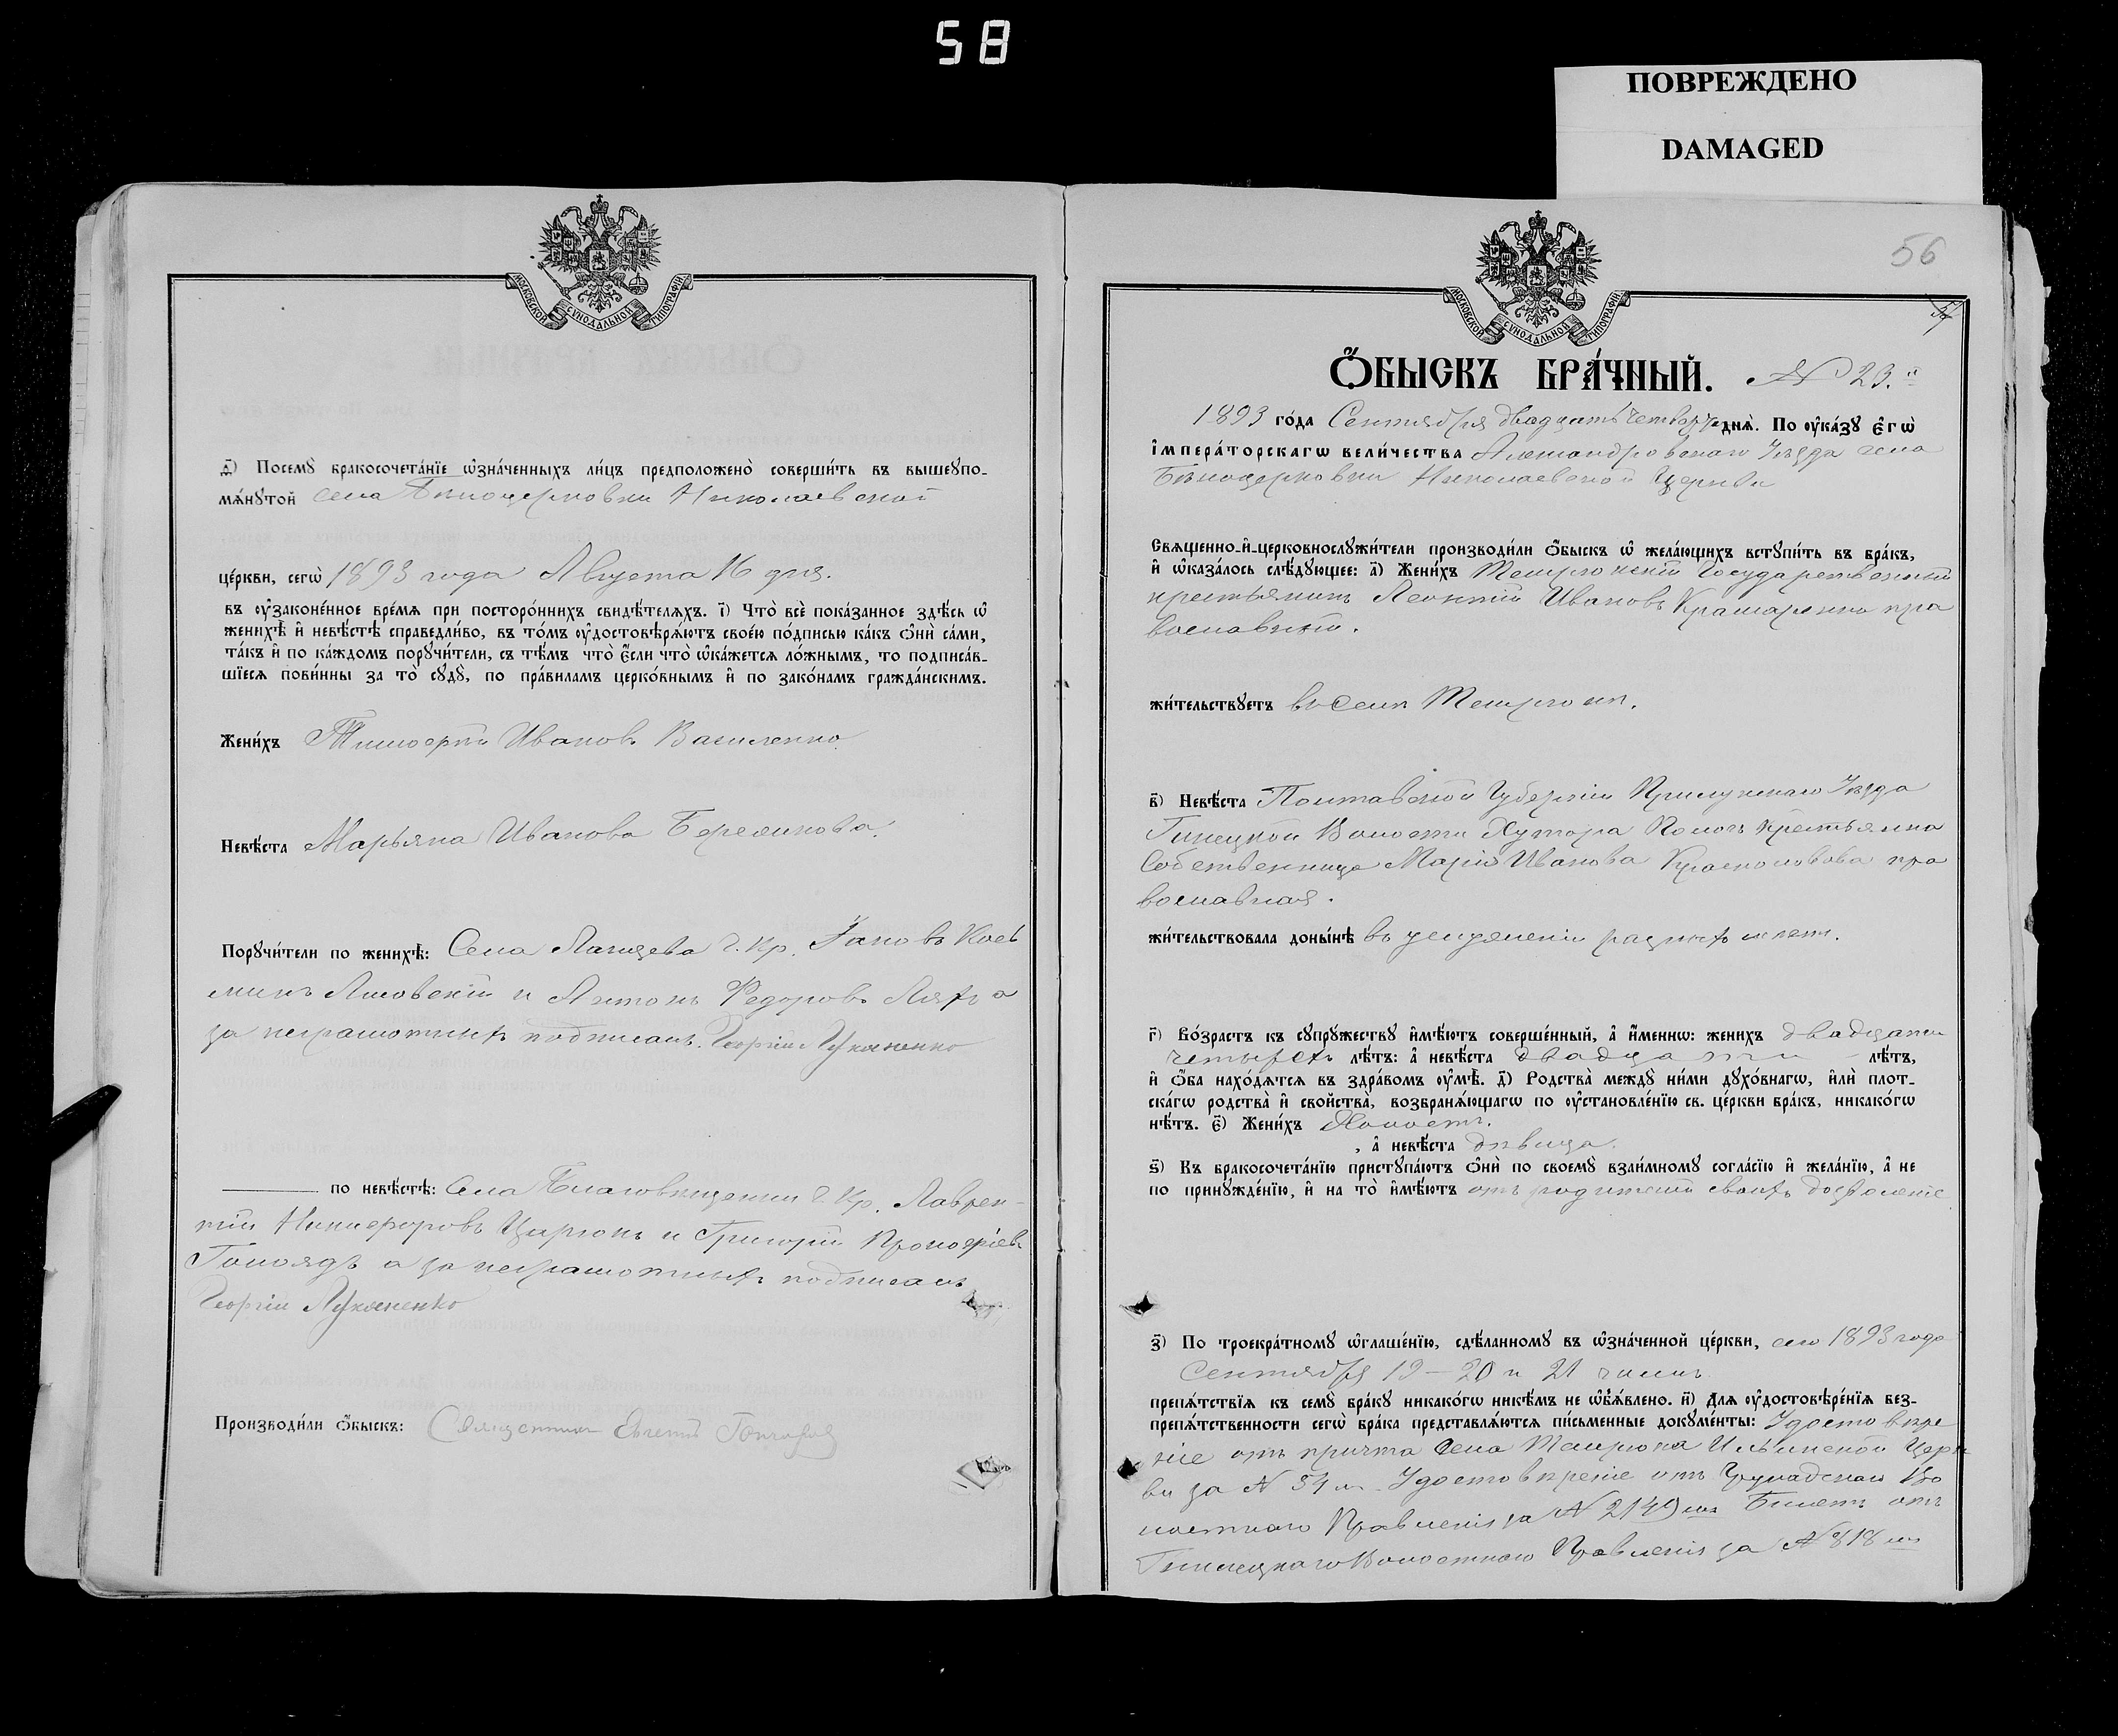 58
ПОВРЕЖДЕНО
DAMAGED
МОСКОВСКОЙ СѴНОДАЛЬНОЙ ТИПОГРАФІИ
д҃і) Посемꙋ бракосочета́нїе ѡ҆зна́ченныхъ ли́цъ предположено̀ соверши́ть въ вышеꙋпо-
мѧ́нꙋтой села Бѣлоцерковки Николаевской
це́ркви, сегѡ̀ 1893 года Августа 16 дня.
въ ᲂу҆законе́нное вре́мѧ при посторо́ннихъ свидѣ́телѧхъ. і҃) Что̀ всѐ пока́занное здѣ́сь ѡ҆
женихѣ̀ и҆ невѣ́стѣ справедли́во, въ то́мъ ᲂу҆достовѣрѧ́ютъ свое́ю по́дписью ка́къ ѻ҆нѝ са́ми,
та́къ и҆ по ка́ждомъ порꙋчи́тели, съ тѣ́мъ что̀ є҆́сли что̀ ѡ҆ка́жетсѧ ло́жнымъ, то подписа́в-
шїесѧ пови́нны за то̀ сꙋдꙋ̀, по пра́виламъ церко́внымъ и҆ по зако́намъ гражда́нскимъ.
Жени́хъ Тимофей Ивановъ Василенко
Невѣ́ста Марьяна Иванова
Порꙋчи́тели по женихѣ̀: Села г. кр. Яковъ Кось
минъ и Антонъ Федоровъ а
за неграмотныхъ подписалъ Георгій Лукяненко
по невѣ́стѣ: Села Благовѣщенки г. кр. Лаврен-
тій Никифоровъ и Григорій Прокофіевъ
а за неграмотныхъ подписалъ
Георгій Лукяненко
Производи́ли ѻ҆́быскъ: Священникъ Евгеній Гончаровъ
56
МОСКОВСКОЙ СѴНОДАЛЬНОЙ ТИПОГРАФІИ
Ѻ҆́БЫСКЪ БРА́ЧНЫЙ. № 23.й
1893 го́да Сентября двадцать четвертаго днѧ̀. По ᲂу҆ка́зꙋ є҆гѡ̀
і҆мпера́торскагѡ вели́чества Александровскаго Уѣзда села
Бѣлоцерковки Николаевской Церкви
Свѧще́нно-и҆-церковнослꙋжи́тели производи́ли ѻ҆́быскъ ѡ҆ жела́ющихъ встꙋпи́ть въ бра́къ,
и҆ ѡ҆каза́лось слѣ́дꙋющее: а҃) Жени́хъ Темрюкскій Государственный
крестьянинъ Леонтій Ивановъ Крамаренко пра
вославный.
жи́тельствꙋетъ въ Селѣ Темрюкѣ.
в҃) Невѣ́ста Полтавской Губерніи Прилукскаго Уѣзда
Волости Хутора крестьянка
Собственница Марія Иванова пра
вославная.
жи́тельствовала доны́нѣ въ услуженіи
г҃) Во́зрастъ къ сꙋпрꙋ́жествꙋ и҆мѣ́ютъ соверше́нный, а҆ и҆́меннѡ: жени́хъ двадцати
четырехъ лѣ́тъ: а҆ невѣ́ста двадцати лѣ́тъ,
и҆ ѻ҆́ба нахо́дѧтсѧ въ здра́вомъ ᲂу҆мѣ̀. д҃) Родства̀ междꙋ̀ ни́ми дꙋхо́внагѡ, и҆лѝ плот-
ска́гѡ родства̀ и҆ свойства̀, возбранѧ́ющагѡ по ᲂу҆становле́нїю св. це́ркви бра́къ, никако́гѡ
нѣ́тъ. є҃) Жени́хъ Холостъ.
, а҆ невѣ́ста дѣвица.
ѕ҃) Къ бракосочета́нїю пристꙋпа́ютъ ѻ҆нѝ по своемꙋ̀ взаи́мномꙋ согла́сїю и҆ жела́нїю, а҆ не
по принꙋжде́нїю, и҆ на то̀ и҆мѣ́ютъ отъ родителей своихъ дозволеніе
з҃) По троекра́тномꙋ ѡ҆глаше́нїю, сдѣ́ланномꙋ въ ѡ҆зна́ченной це́ркви, сего 1893 года
Сентября 19 – 20 и 21 чиселъ
препѧ́тствїѧ къ семꙋ̀ бра́кꙋ никако́гѡ никѣ́мъ не ѡ҆б̾ѧ́влено. и҃) Для ᲂу҆достовѣре́нїѧ без-
препѧ́тственности сегѡ̀ бра́ка представлѧ́ютсѧ пи́сьменные докꙋме́нты: Удостовѣре
ніе отъ причта Села Темрюка Ильинской Церк
ви за № 54 м. Удостовѣреніе отъ Во
лостнаго Правленія за № 2149 мъ Билетъ отъ
Волостнаго Правленія за № 818 мъ